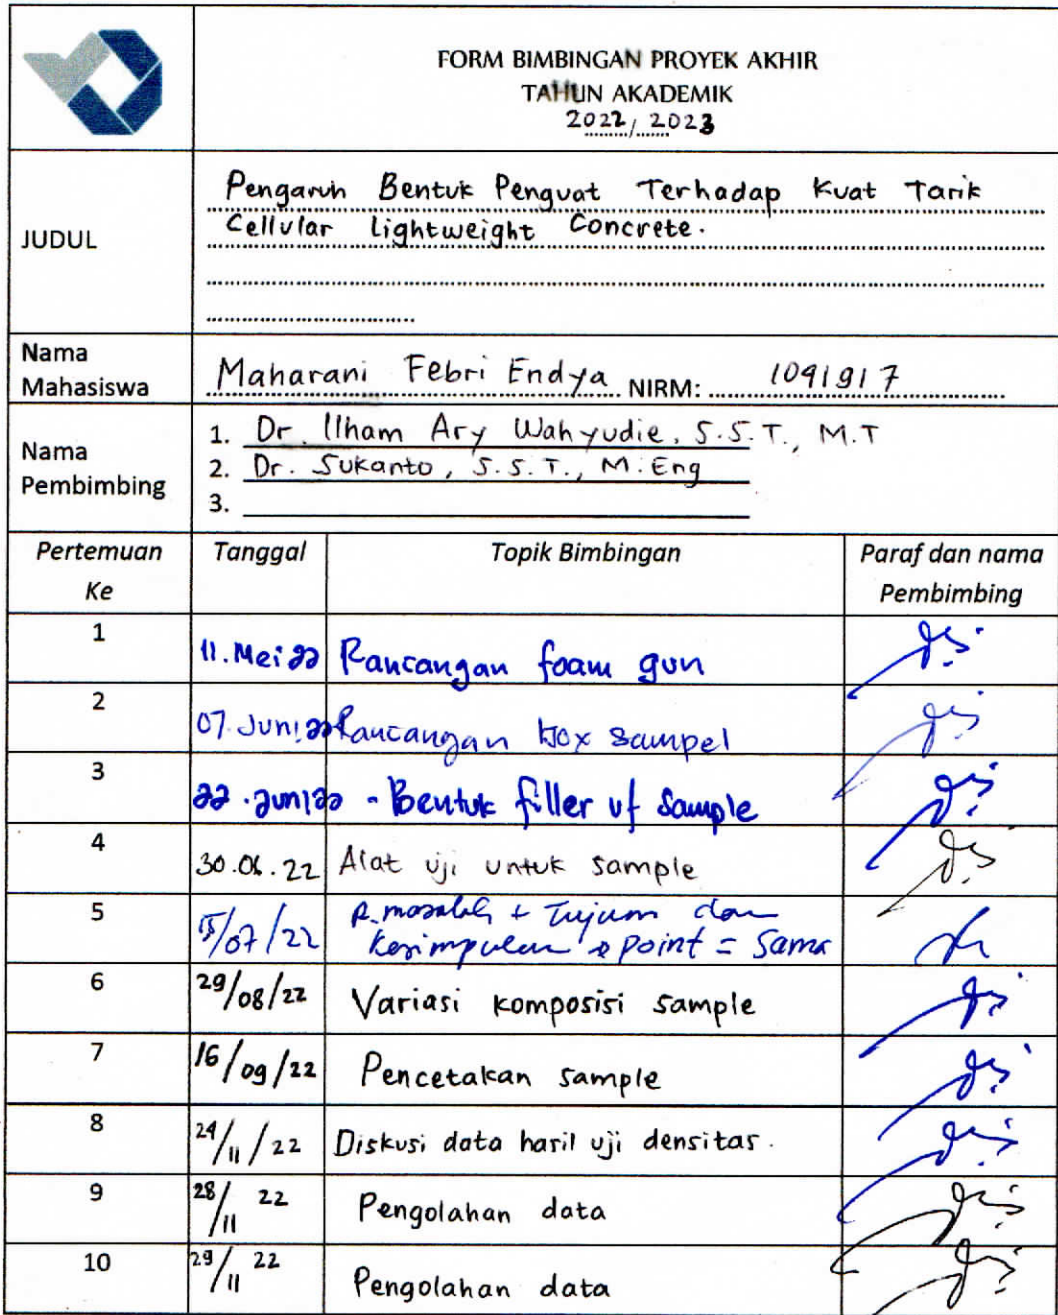 FORM BIMBINGAN PROYEK AKHIR
TAHUN AKADEMIK
2022/2023
JUDUL
Pengaruh Bentuk Penguat Terhadap Kuat Tarik
Cellular Lightweight Concrete.
Nama Mahasiswa
Maharani Febri Endya NIRM: 1091917
Nama Pembimbing
1. Dr. Ilham Ary Wahyudie, S.S.T., M.T
2. Dr. Sukanto, S.S.T., M.Eng
3.
Pertemuan Ke Tanggal Topik Bimbingan Paraf dan nama Pembimbing
1 11.Mei 22 Rancangan foam gun
2 07.Juni 22 Rancangan box sampel
3 22.Juni 22 - Bentuk filler Sample
4 30.06.22 Alat uji untuk sample
5 15/07/22 R.masalah + Tujuan dan
Kesimpulan point = Sama
6 29/08/22 Variasi komposisi sample
7 16/09/22 Pencetakan sample
8 /11/22 Diskusi data hasil uji densitas.
9 28/11 22 Pengolahan data
10 29/11 22 Pengolahan data